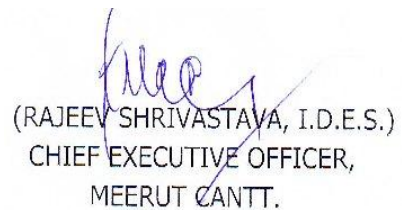 (RAJEEV SHRIVASTAVA, I.D.E.S.)
CHIEF EXECUTIVE OFFICER,
MEERUT CANTT.